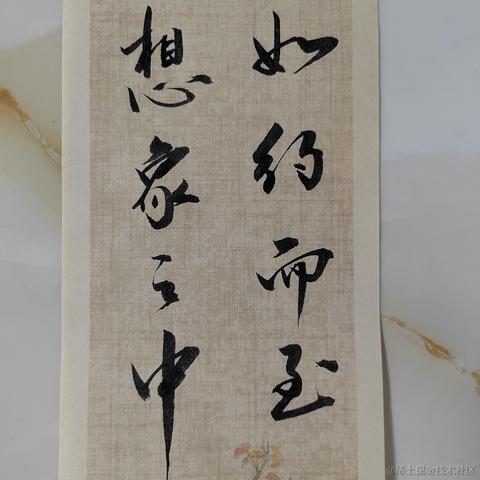 如约而至
想象之中
@稀土掘金技术社区